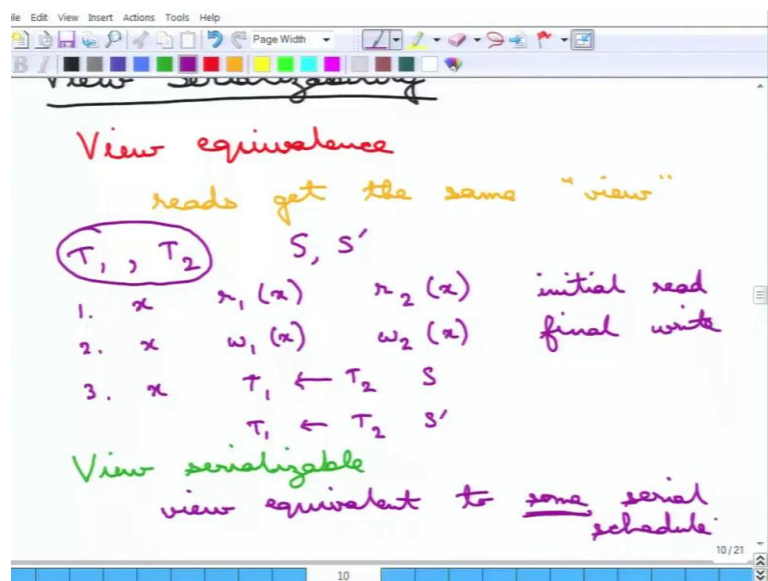 File Edit View Insert Actions Tools Help
Page Width
View Serializability
View equivalence
reads get the same "view"
T₁ , T₂ S, S′
1. x r₁ (x) r₂ (x) initial read
2. x w₁ (x) w₂ (x) final write
3. x T₁ ← T₂ S
T₁ ← T₂ S′
View serializable
view equivalent to some serial
schedule.
10 / 21
10